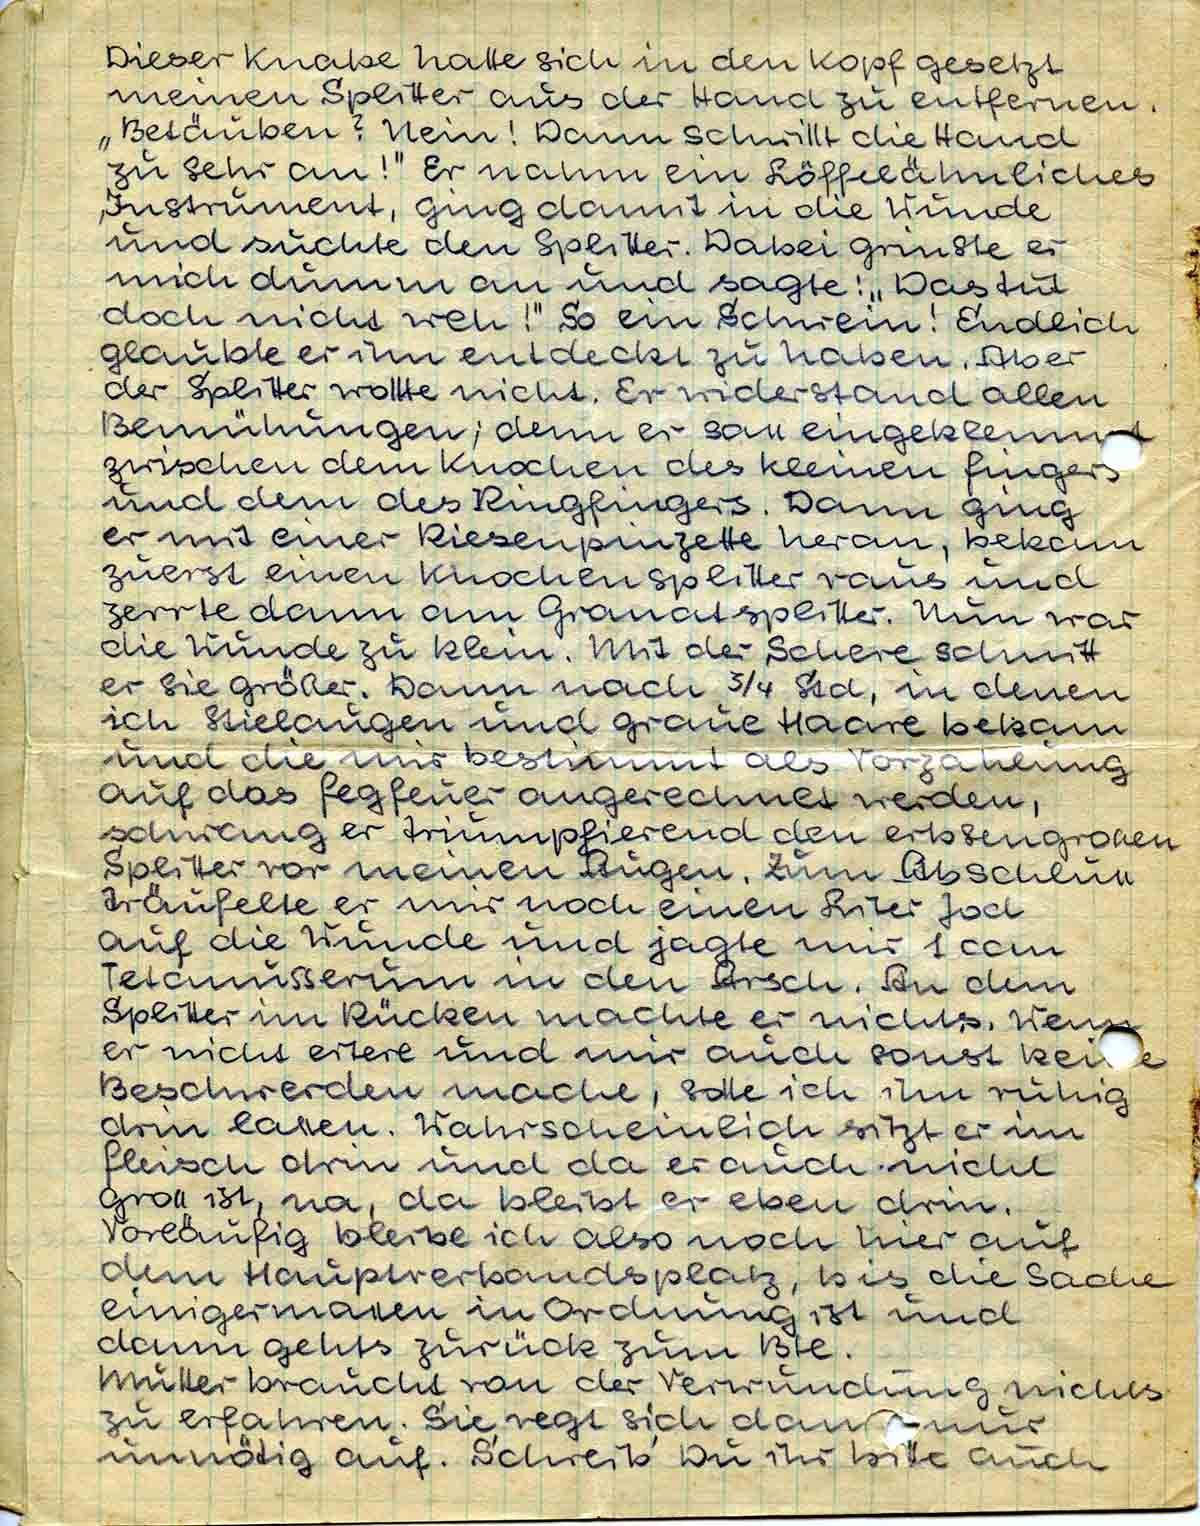 Dieser Knabe hatte sich in den Kopf gesetzt
meinen Splitter aus der Hand zu entfernen.
„Betäuben? Nein! Dann schwillt die Hand
zu sehr an!" Er nahm ein Löffelähnliches
Instrument, ging damit in die Wunde
und suchte den Splitter. Dabei grinste er
mich dumm an und sagte: „Das tut
doch nicht weh!" So ein Schwein! Endlich
glaubte er ihn entdeckt zu haben. Aber
der Splitter wollte nicht. Er widerstand allen
Bemühungen, denn er saß eingeklemmt
zwischen dem Knochen des kleinen Fingers
und dem des Ringfingers. Dann ging
er mit einer Riesenpinzette heran, bekam
zuerst einen Knochensplitter raus und
zerrte dann am Granatsplitter. Nun war
die Wunde zu klein. Mit der Schere schnitt
er sie größer. Dann nach 3/4 Std, in denen
ich Stielaugen und graue Haare bekam
und die mir bestimmt als Vorzahlung
auf das Fegfeuer angerechnet werden,
schwang er triumpfierend den erbsengroßen
Splitter vor meinen Augen. Zum Abschluß
träufelte er mir noch einen Liter Jod
auf die Wunde und jagte mir 1 ccm
Tetanusserum in den Arsch. An dem
Splitter im Rücken machte er nichts. Wenn
er nicht eitere und mir auch sonst keine
Beschwerden mache, solle ich ihn ruhig
drin laßen. Wahrscheinlich sitzt er im
Fleisch drin und da er auch nicht
groß ist, na, da bleibt er eben drin.
Vorläufig bleibe ich also noch hier auf
dem Hauptverbandsplatz, bis die Sache
einigermaßen in Ordnung ist und
dann gehts zurück zum Btl.
Mutter braucht von der Verwundung nichts
zu erfahren. Sie regt sich dann nur
unnötig auf. Schreib' Du ihr bitte auch